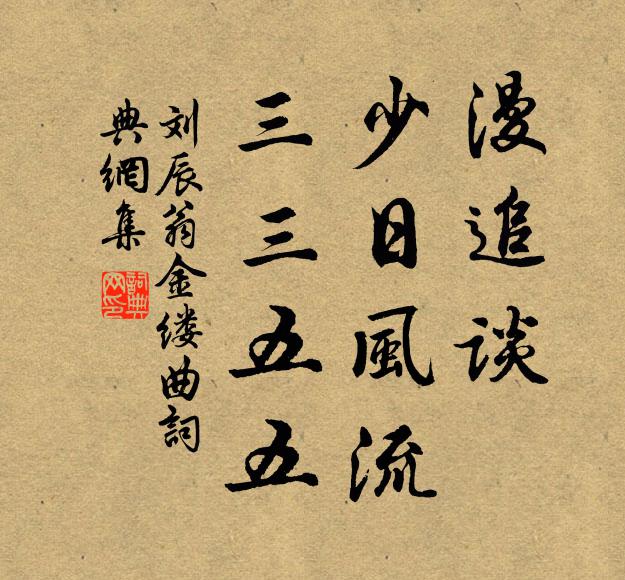 漫追談
少日風流
三三五五
刘辰翁金缕曲詞
典網集
詞典网印